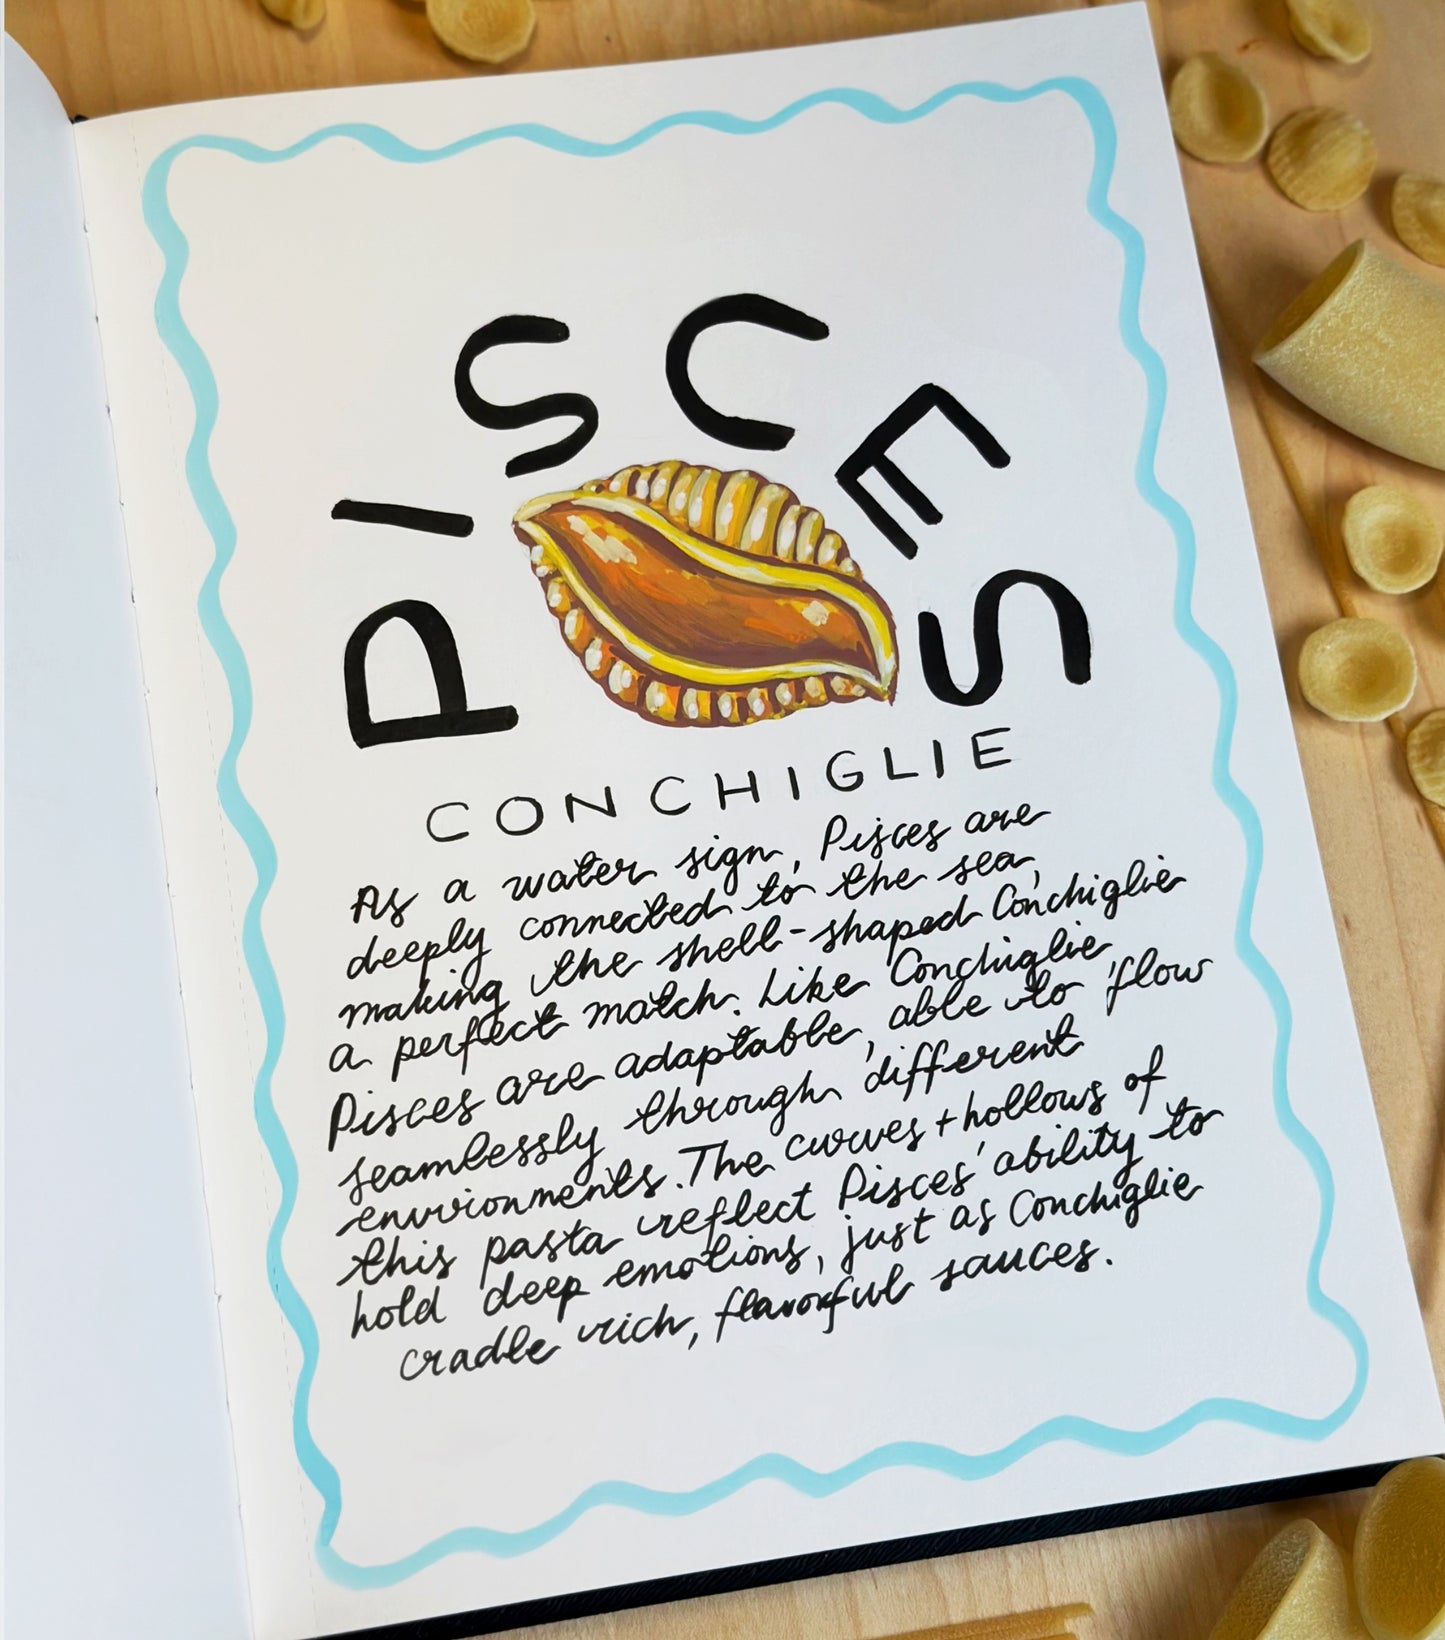 PISCES
CONCHIGLIE
As a water sign, Pisces are
deeply connected to the sea,
making the shell-shaped Conchiglie
a perfect match. Like Conchiglie,
Pisces are adaptable, able to flow
seamlessly through different
environments. The curves + hollows of
this pasta reflect Pisces' ability to
hold deep emotions, just as Conchiglie
cradle rich, flavorful sauces.